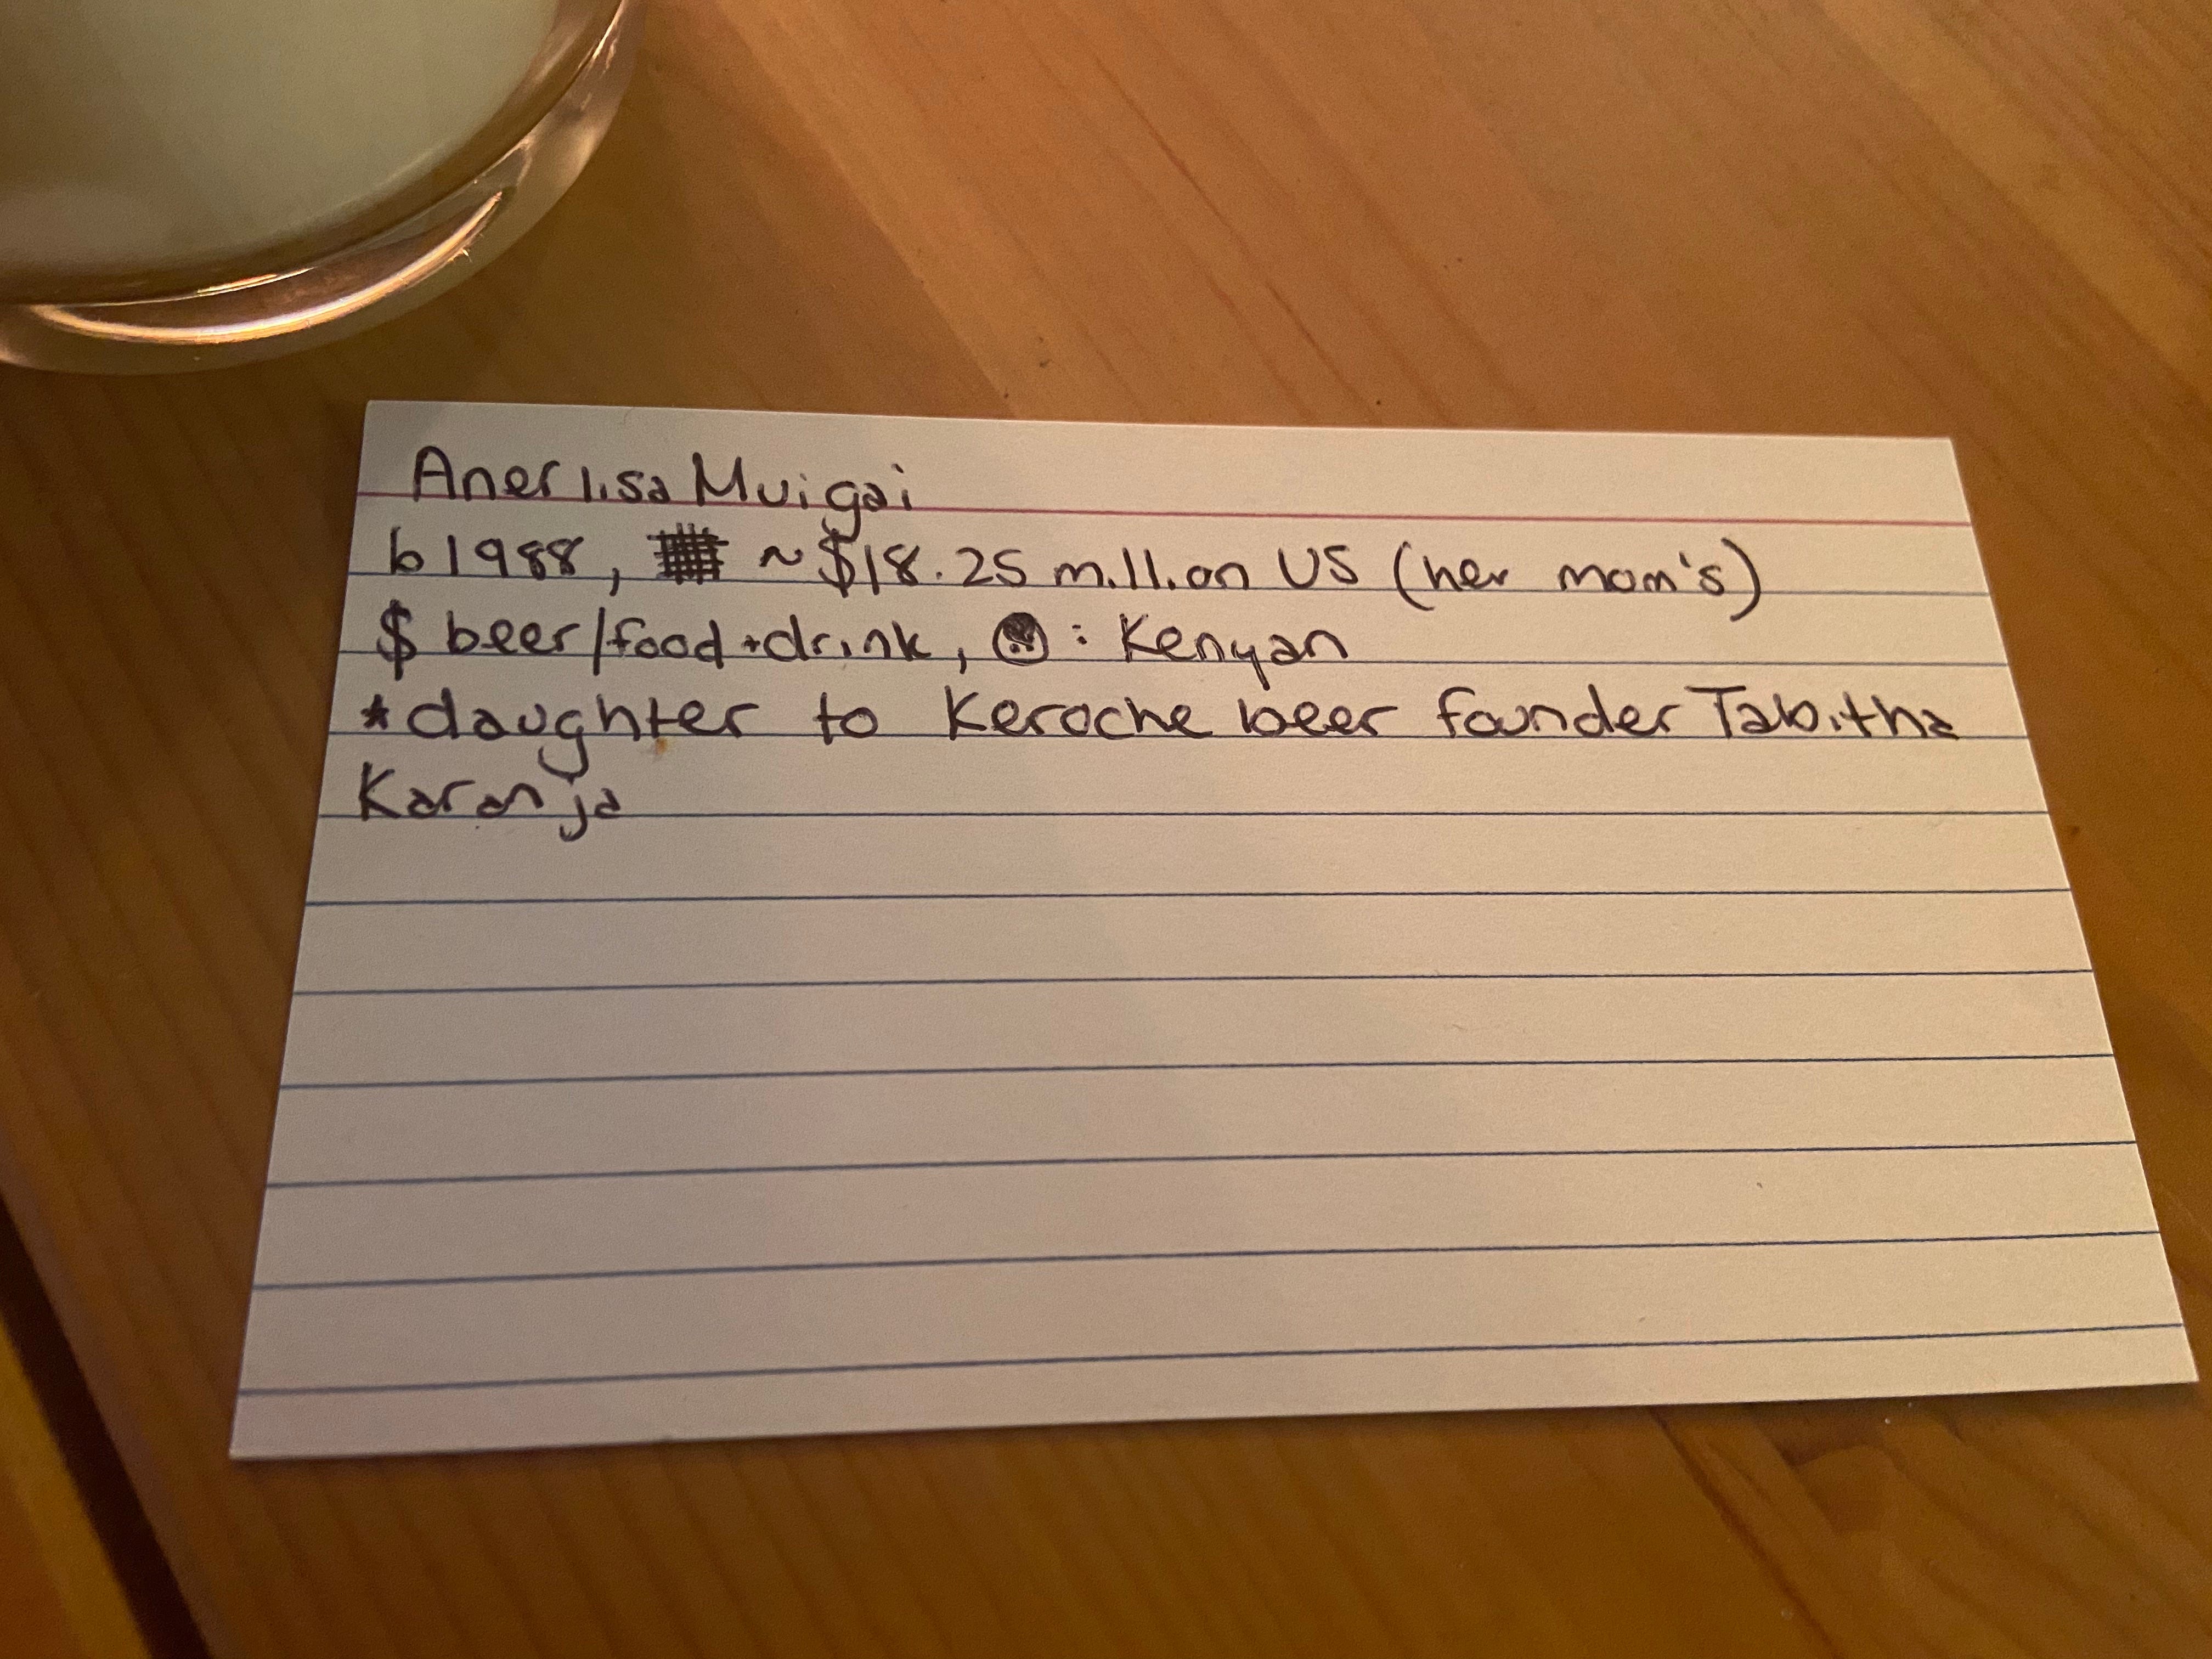 Anerlisa Muigai
b 1988, ~$18.25 million US (her mom's)
$ beer/food+drink, : Kenyan
*daughter to Keroche beer founder Tabitha
Karanja